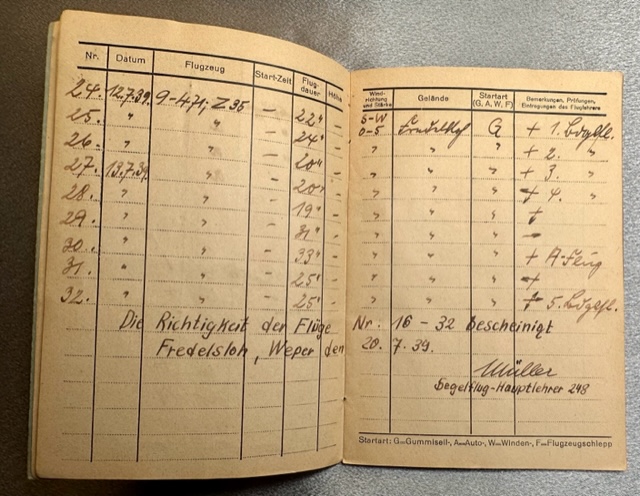 Nr. Datum Flugzeug Start-Zeit Flug-dauer Höhe
24. 12.7.39. 9-471; Z 35 — 22" —
25. " " — 24" —
26. " " — 20" —
27. 13.7.39. " — 20" —
28. " " — 19" —
29. " " — 31" —
30. " " — 33" —
31. " " — 25" —
32. " " — 25" —
Die Richtigkeit der Flüge
Fredelsloh, Weper den
Wind-richtung und Stärke Gelände Startart (G, A, W, F) Bemerkungen, Prüfungen, Eintragungen des Fluglehrers
S-W
0-5 G + 1. Bdgfl.
" " " + 2. "
" " " + 3. "
" " " + 4. "
" " " +
" " " —
" " " + A-Flug
" " " +
" " " + 5. Bdgfl.
Nr. 16 - 32 bescheinigt
20. 7. 39.
Müller
Segelflug-Hauptlehrer 248
Startart: G=Gummiseil-, A=Auto-, W=Winden-, F=Flugzeugschlepp